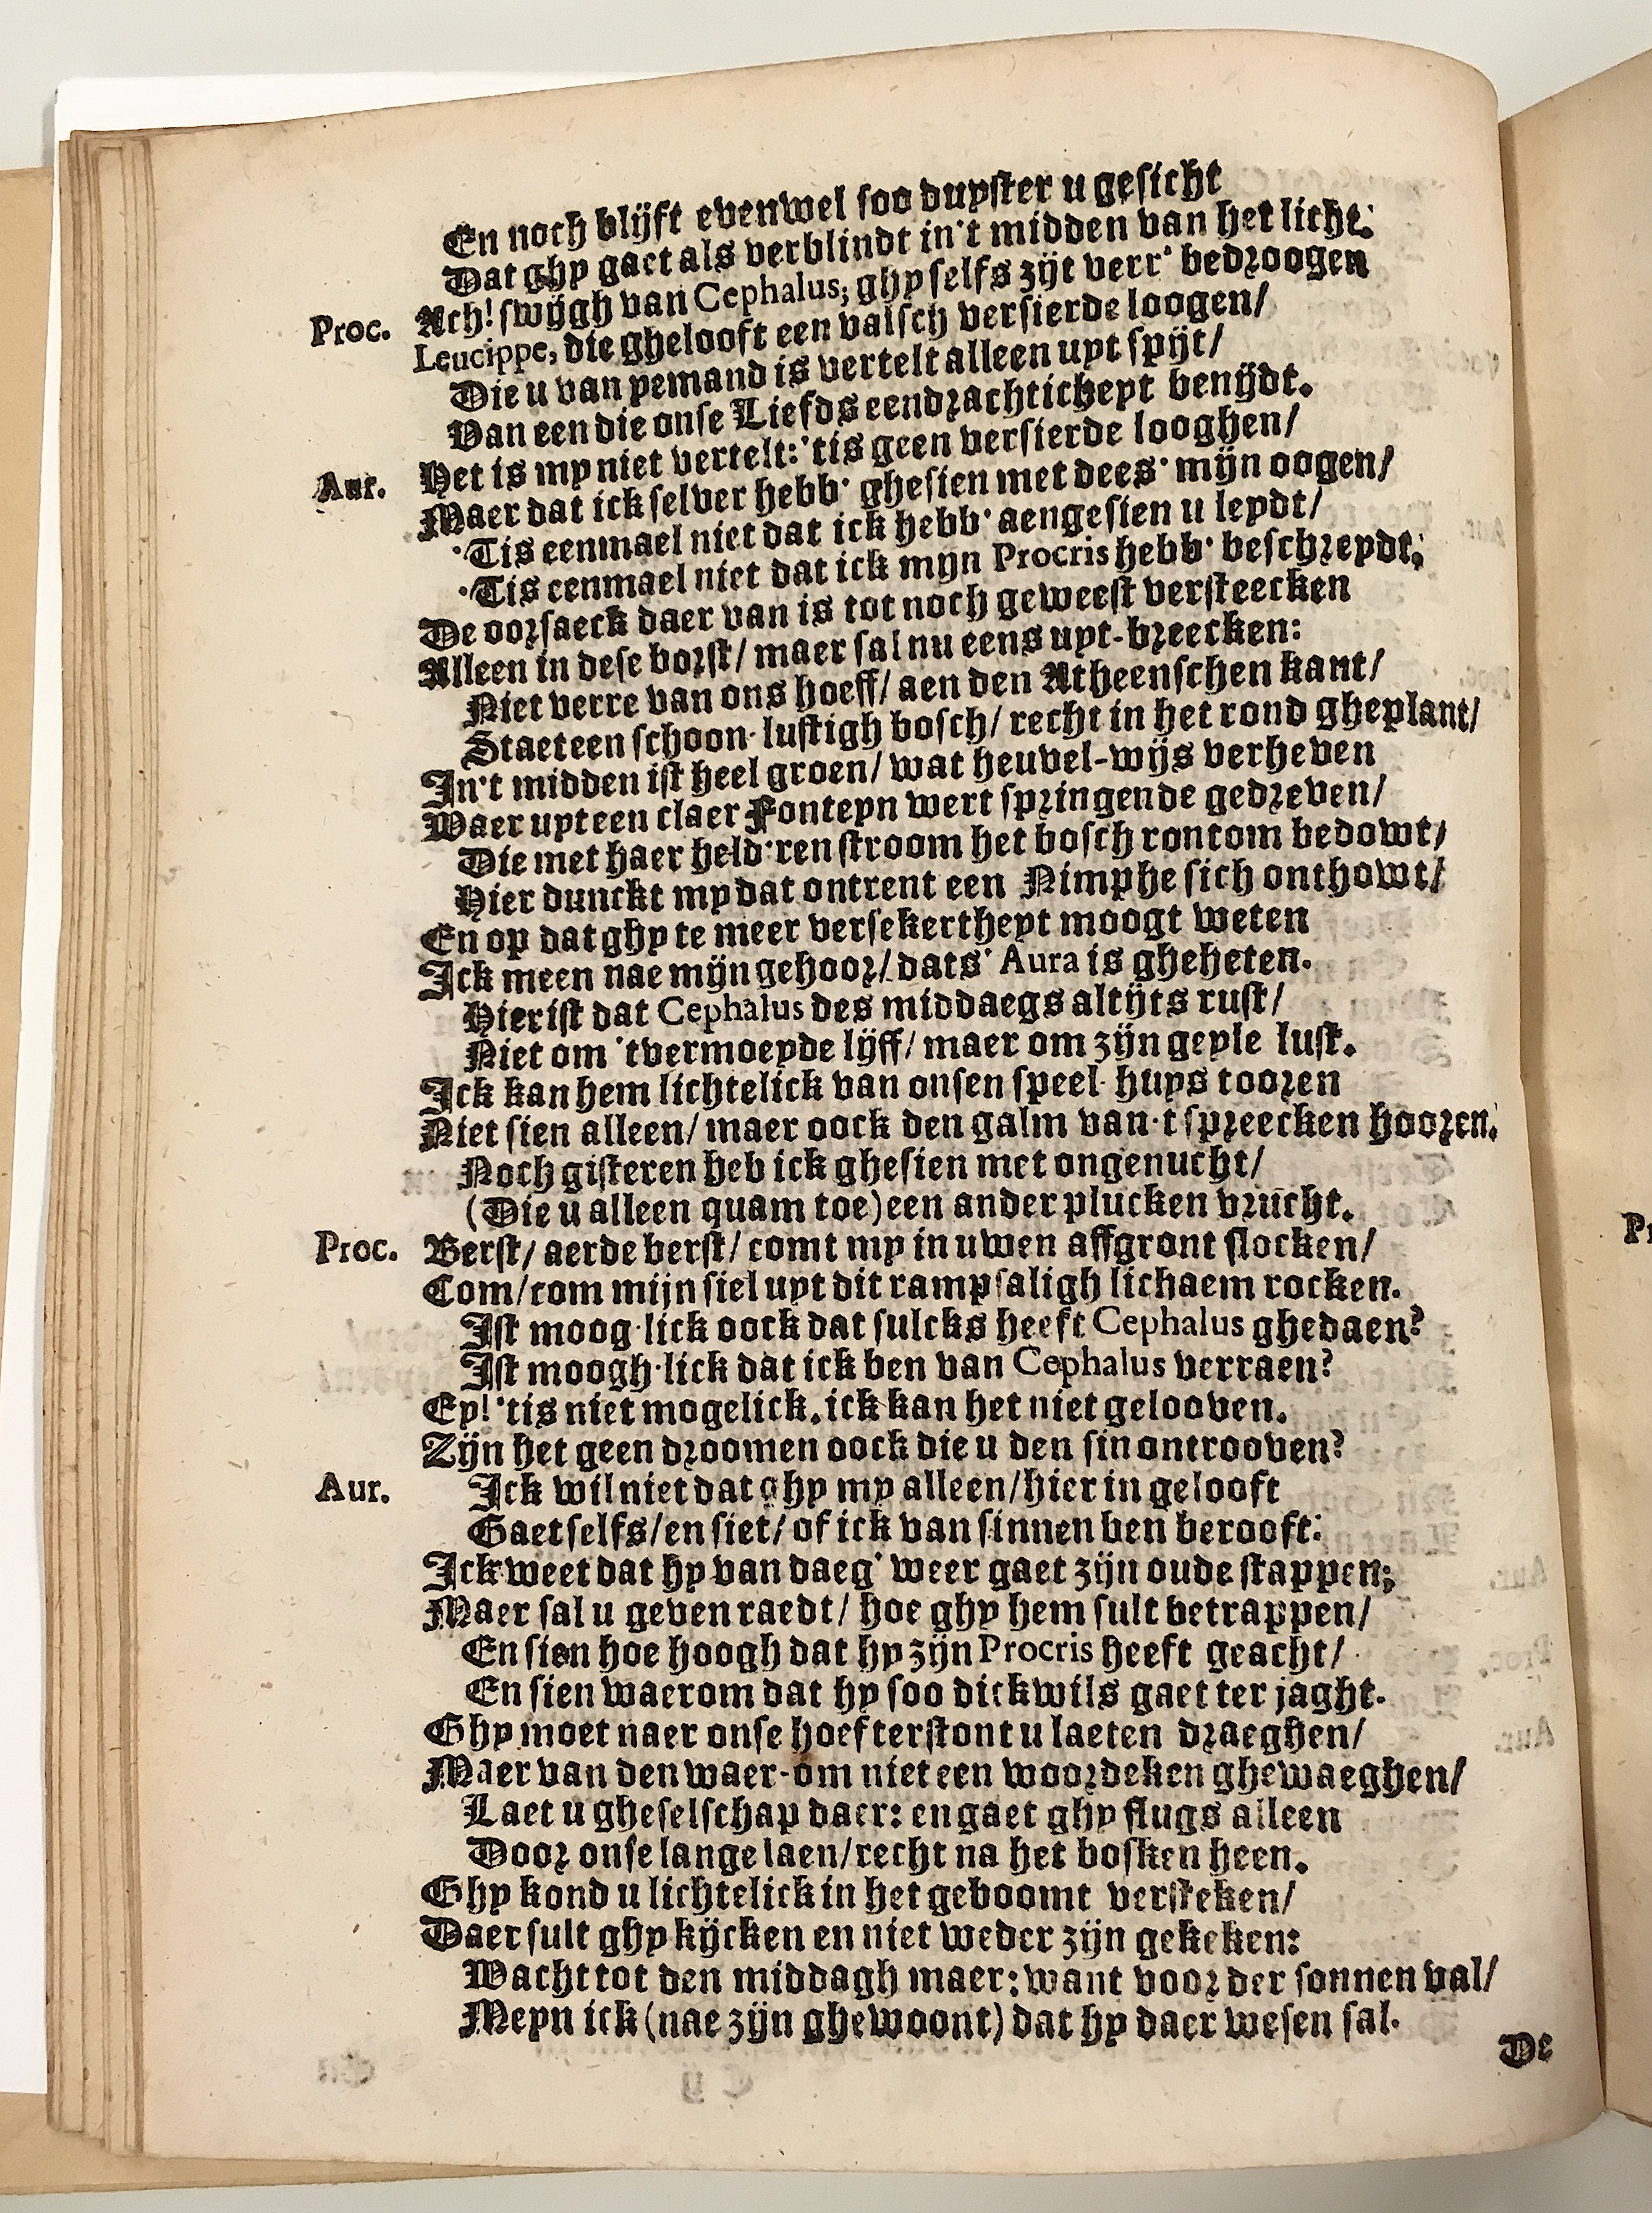 En noch blijft evenwel soo duyster u gesicht
Dat ghy gaet als verblindt in't midden van het licht.
Proc. Ach! swijgh van Cephalus; ghy selfs zijt verr' bedroogen
Leucippe, die ghelooft een valsch versierde loogen/
Die u van yemand is vertelt alleen uyt spijt/
Van een die onse Liefds eendrachticheyt benijdt.
Aur. Het is my niet vertelt: 'tis geen versierde looghen/
Maer dat ick selver hebb' ghesien met dees' mijn oogen/
'Tis eenmael niet dat ick hebb' aengesien u leydt/
'Tis eenmael niet dat ick mijn Procris hebb' beschreydt.
De oorsaeck daer van is tot noch geweest versteecken
Alleen in dese borst/ maer sal nu eens uyt-breecken:
Niet verre van ons hoeff/ aen den Atheenschen kant/
Staet een schoon lustigh bosch/ recht in het rond gheplant/
In't midden ist heel groen/ wat heuvel-wijs verheven
Waer uyt een claer Fonteyn wert springende gedreven/
Die met haer held'ren stroom het bosch rontom bedowt/
Hier dunckt my dat ontrent een Nimphe sich onthowt/
En op dat ghy te meer versekertheyt moogt weten
Ick meen nae mijn gehoor/ dats' Aura is gheheten.
Hier ist dat Cephalus des middaegs altijts rust/
Niet om 't vermoeyde lijff/ maer om zijn geyle lust.
Ick kan hem lichtelick van onsen speel-huys tooren
Niet sien alleen/ maer oock den galm van't spreecken hooren.
Noch gisteren heb ick ghesien met ongenucht/
(Die u alleen quam toe) een ander plucken vrucht.
Proc. Berst/ aerde berst/ comt my in uwen affgront slocken/
Com/ com mijn siel uyt dit rampsaligh lichaem rocken.
Ist moog'lick oock dat sulcks heeft Cephalus ghedaen?
Ist moogh'lick dat ick ben van Cephalus verraen?
Ey! 'tis niet mogelick, ick kan het niet gelooven.
Zijn het geen droomen oock die u den sin ontrooven?
Aur. Ick wil niet dat ghy my alleen/ hier in gelooft
Gaet selfs/ en siet/ of ick van sinnen ben berooft:
Ick weet dat hy van daeg' weer gaet zijn oude stappen;
Maer sal u geven raedt/ hoe ghy hem sult betrappen/
En sien hoe hoogh dat hy zijn Procris heeft geacht/
En sien waerom dat hy soo dickwils gaet ter jaght.
Ghy moet naer onse hoef terstont u laeten draeghen/
Maer van den waer-om niet een woordeken ghewaeghen/
Laet u gheselschap daer: en gaet ghy flugs alleen
Door onse lange laen/ recht na het bosken heen.
Ghy kond u lichtelick in het geboomt versteken/
Daer sult ghy kijcken en niet weder zijn gekeken:
Wacht tot den middagh maer: want voor der sonnen val/
Meyn ick (nae zijn ghewoont) dat hy daer wesen sal.
De